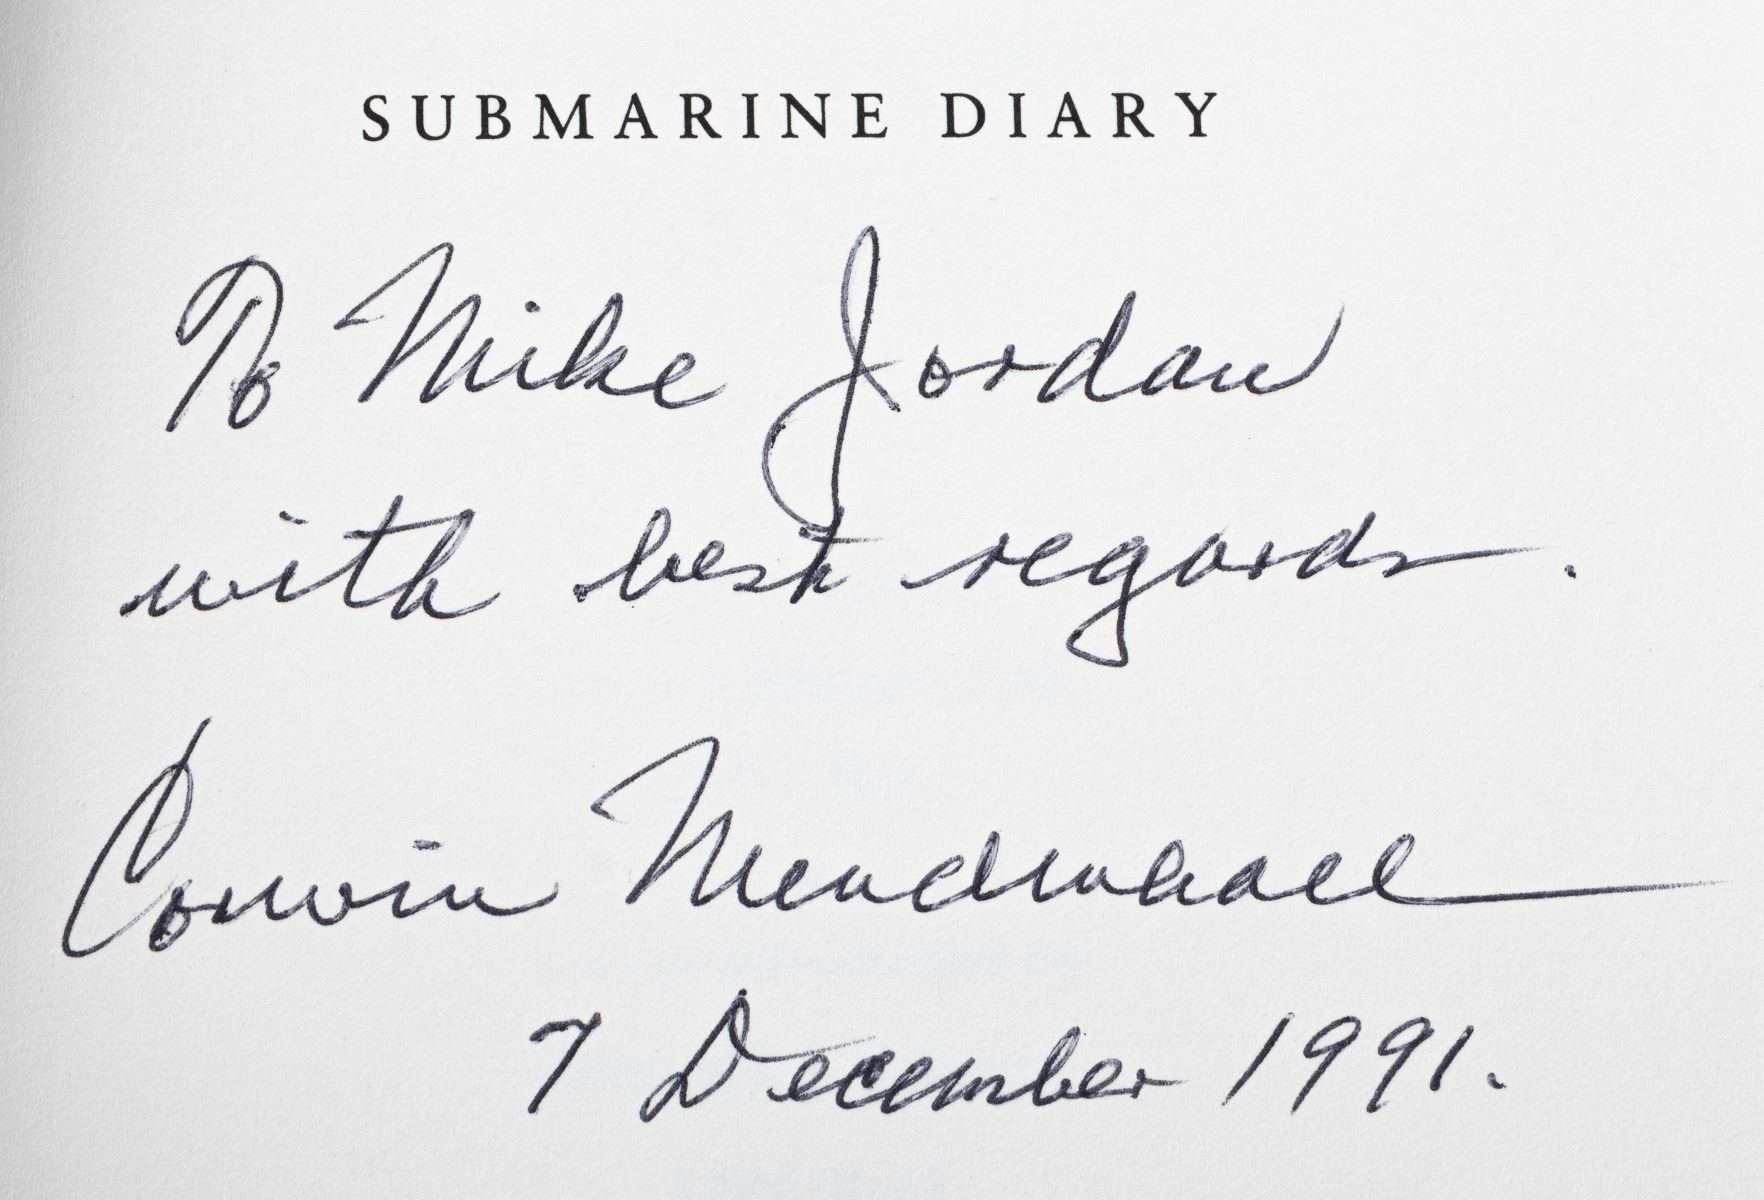 SUBMARINE DIARY
To Mike Jordan
with best regards.
Corwin Mendenhall
7 December 1991.